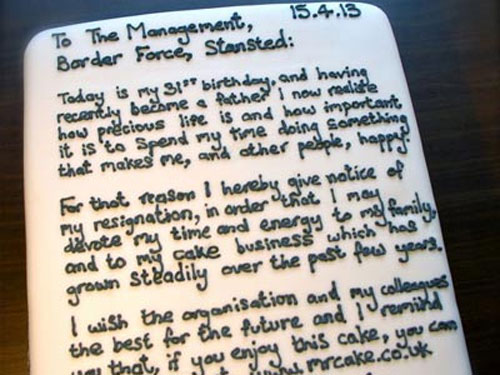 15.4.13
To The Management,
Border Force, Stansted:
Today is my 31ST birthday, and having
recently become a father I now realise
how precious life is and how important
it is to spend my time doing something
that makes me, and other people, happy.
For that reason I hereby give notice of
my resignation, in order that I may
devote my time and energy to my family,
and to my cake business which has
grown steadily over the past few years.
I wish the organisation and my colleagues
the best for the future and I remind
you that, if you enjoy this cake, you can
www.mrcake.co.uk